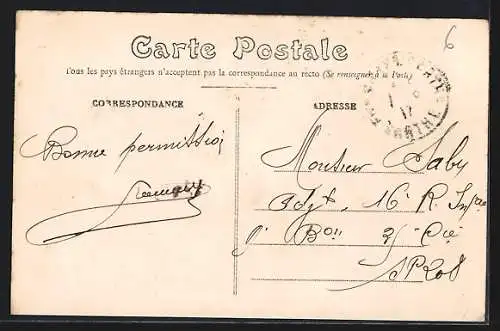 6
Carte Postale
Tous les pays étrangers n'acceptent pas la correspondance au recto (Se renseigner à la Poste)
CORRESPONDANCE
ADRESSE
Bonne permission
Monsieur Saby
Adjt, 16e R. Infie
Bon 35 Cie
SP 208